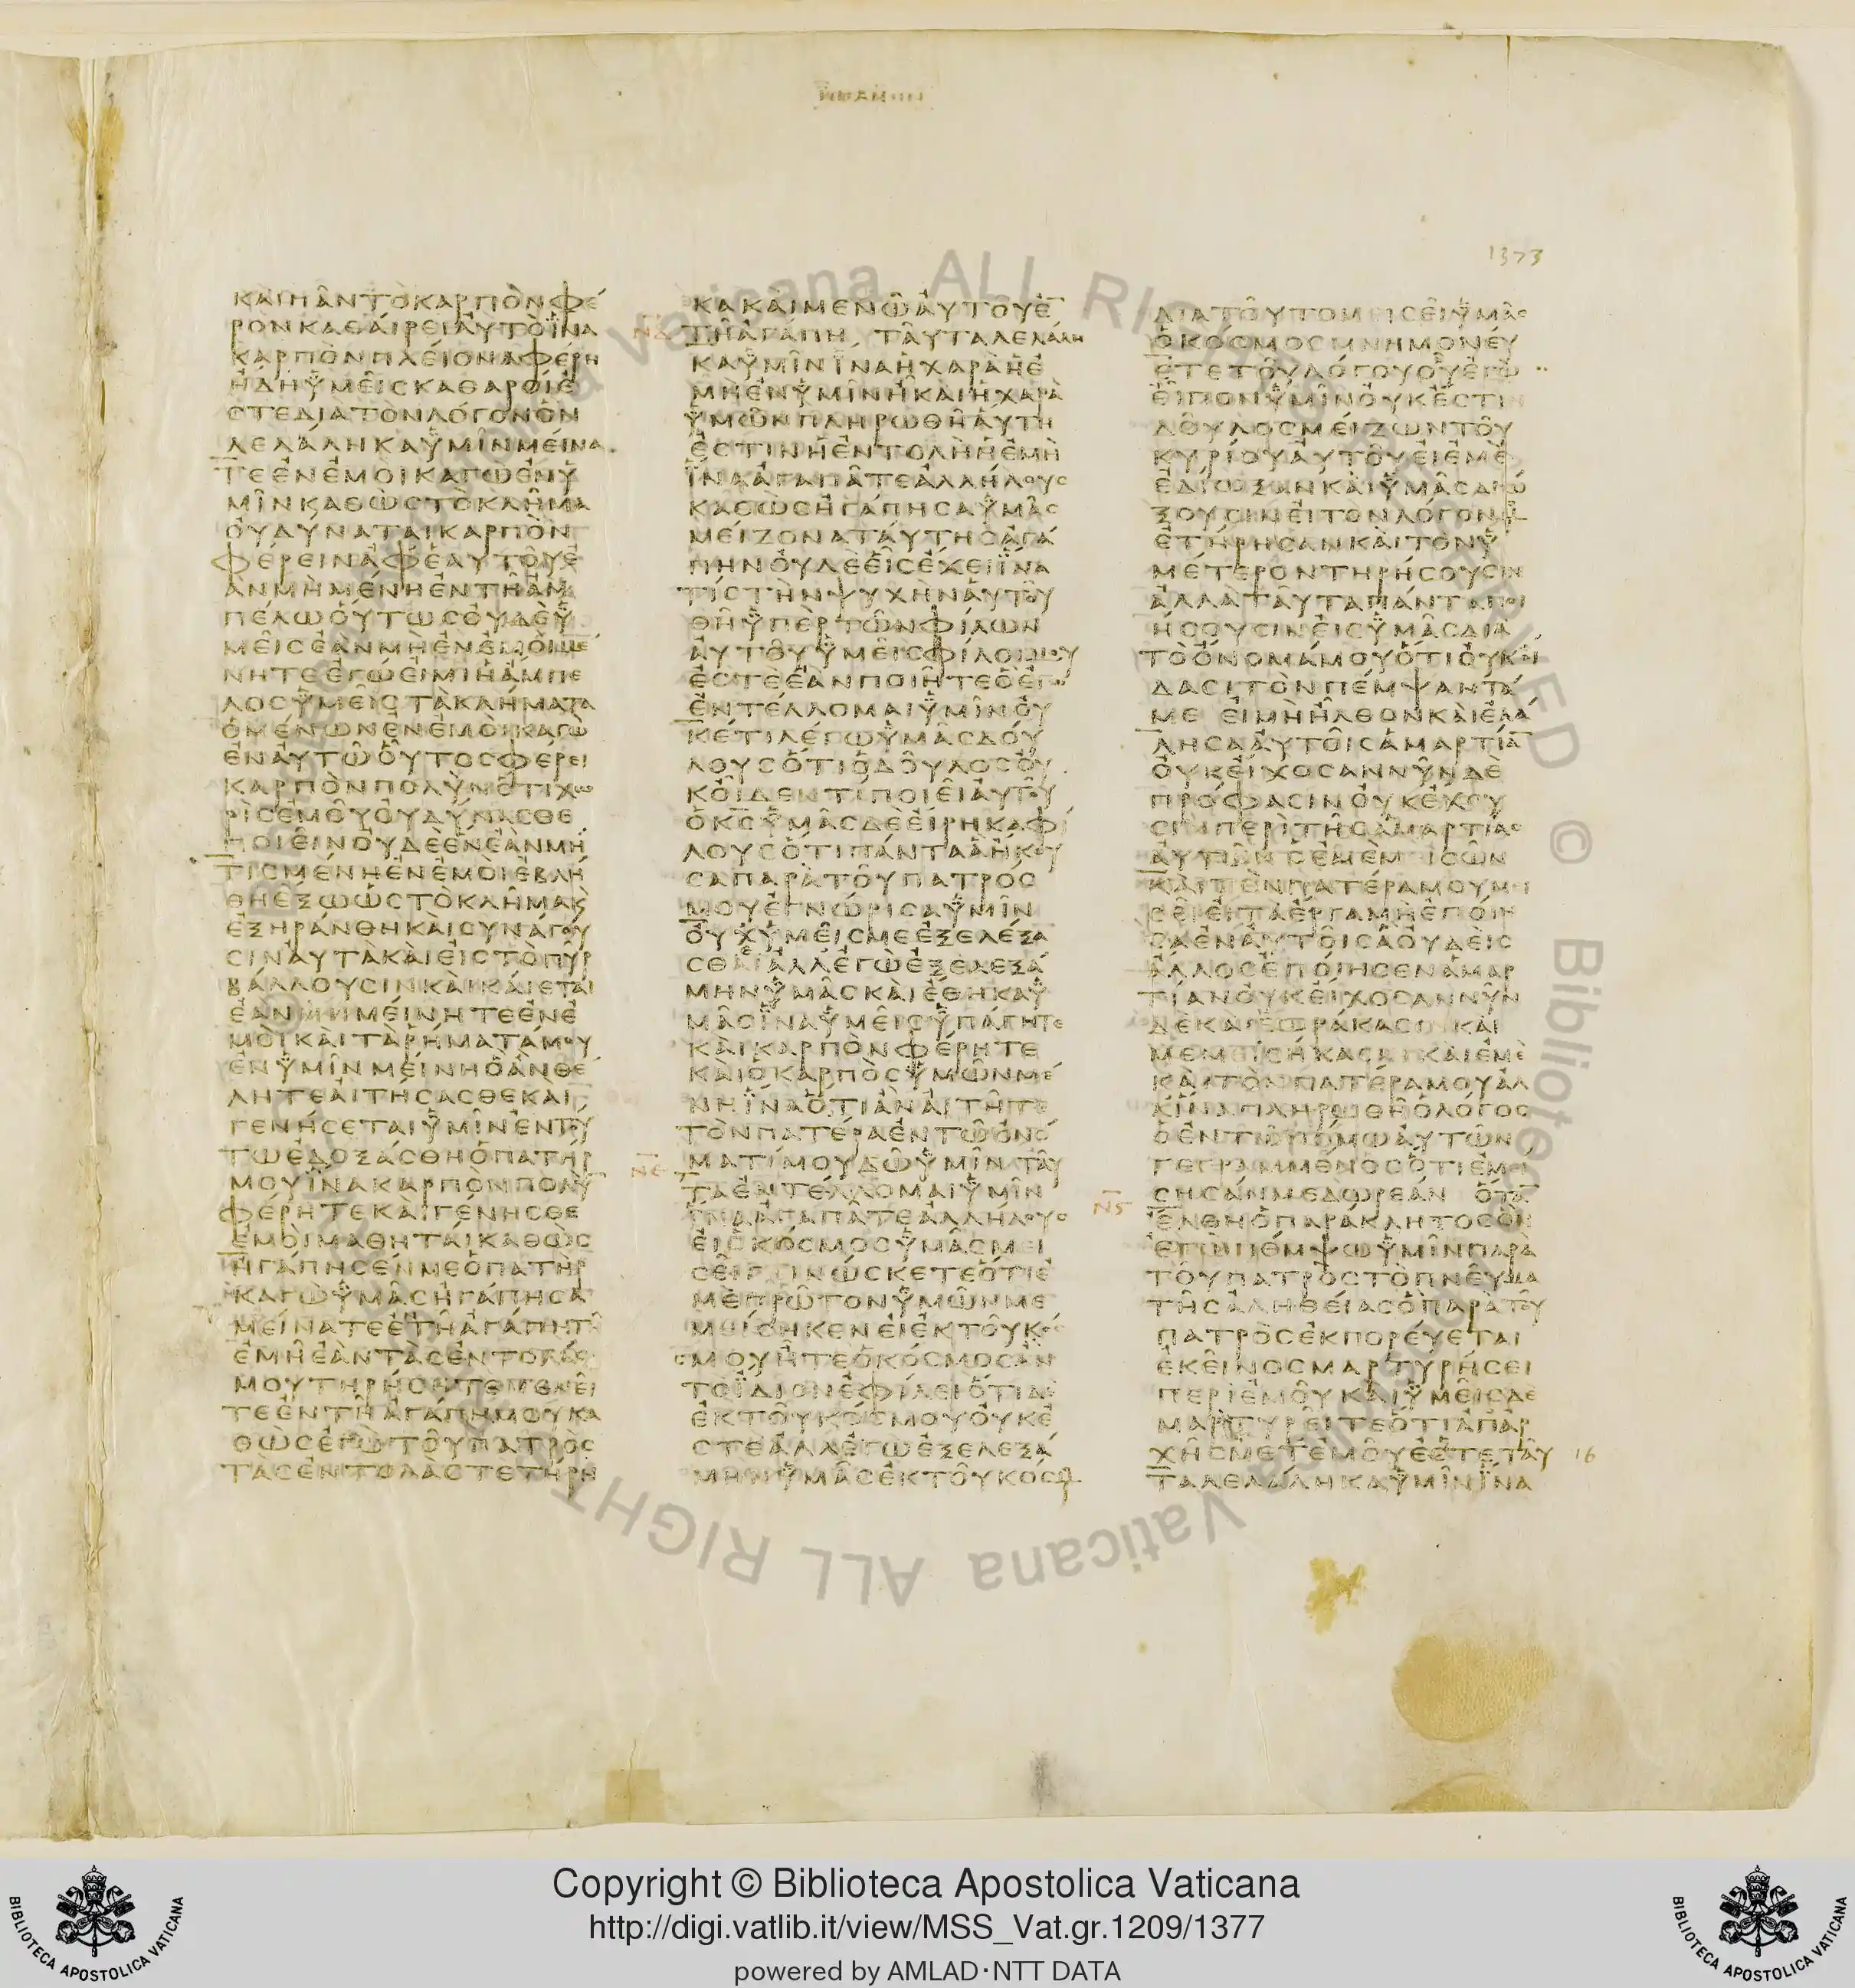 ΙΩΑΝΗΝ
1373
ΚΑΙ ΠΑΝ ΤΟ ΚΑΡΠΟΝ ΦΕ
ΡΟΝ ΚΑΘΑΙΡΕΙ ΑΥΤΟ ΙΝΑ
ΚΑΡΠΟΝ ΠΛΕΙΟΝΑ ΦΕΡΗ
ΗΔΗ ΥΜΕΙΣ ΚΑΘΑΡΟΙ Ε
ΣΤΕ ΔΙΑ ΤΟΝ ΛΟΓΟΝ ΟΝ
ΛΕΛΑΛΗΚΑ ΥΜΙΝ ΜΕΙΝΑ
ΤΕ ΕΝ ΕΜΟΙ ΚΑΓΩ ΕΝ Υ
ΜΙΝ ΚΑΘΩΣ ΤΟ ΚΛΗΜΑ
ΟΥ ΔΥΝΑΤΑΙ ΚΑΡΠΟΝ
ΦΕΡΕΙΝ ΑΦ ΕΑΥΤΟΥ Ε
ΑΝ ΜΗ ΜΕΝΗ ΕΝ ΤΗ ΑΜ
ΠΕΛΩ ΟΥΤΩΣ ΟΥΔΕ Υ
ΜΕΙΣ ΕΑΝ ΜΗ ΕΝ ΕΜΟΙ ΜΕ
ΝΗΤΕ ΕΓΩ ΕΙΜΙ Η ΑΜΠΕ
ΛΟΣ ΥΜΕΙΣ ΤΑ ΚΛΗΜΑΤΑ
Ο ΜΕΝΩΝ ΕΝ ΕΜΟΙ ΚΑΓΩ
ΕΝ ΑΥΤΩ ΟΥΤΟΣ ΦΕΡΕΙ
ΚΑΡΠΟΝ ΠΟΛΥΝ ΟΤΙ ΧΩ
ΡΙΣ ΕΜΟΥ ΟΥ ΔΥΝΑΣΘΕ
ΠΟΙΕΙΝ ΟΥΔΕ ΕΝ ΕΑΝ ΜΗ
ΤΙΣ ΜΕΝΗ ΕΝ ΕΜΟΙ ΕΒΛΗ
ΘΗ ΕΞΩ ΩΣ ΤΟ ΚΛΗΜΑ Κ
ΕΞΗΡΑΝΘΗ ΚΑΙ ΣΥΝΑΓΟΥ
ΣΙΝ ΑΥΤΑ ΚΑΙ ΕΙΣ ΤΟ ΠΥΡ
ΒΑΛΛΟΥΣΙΝ ΚΑΙ ΚΑΙΕΤΑΙ
ΕΑΝ ΜΕΙΝΗΤΕ ΕΝ Ε
ΜΟΙ ΚΑΙ ΤΑ ΡΗΜΑΤΑ ΜΟΥ
ΕΝ ΥΜΙΝ ΜΕΙΝΗ Ο ΑΝ ΘΕ
ΛΗΤΕ ΑΙΤΗΣΑΣΘΕ ΚΑΙ
ΓΕΝΗΣΕΤΑΙ ΥΜΙΝ ΕΝ ΤΟΥ
ΤΩ ΕΔΟΞΑΣΘΗ Ο ΠΑΤΗΡ
ΜΟΥ ΙΝΑ ΚΑΡΠΟΝ ΠΟΛΥ̅
ΦΕΡΗΤΕ ΚΑΙ ΓΕΝΗΣΘΕ
ΕΜΟΙ ΜΑΘΗΤΑΙ ΚΑΘΩΣ
ΗΓΑΠΗΣΕΝ ΜΕ Ο ΠΑΤΗΡ
ΚΑΓΩ ΥΜΑΣ ΗΓΑΠΗΣΑ
ΜΕΙΝΑΤΕ Ε̅ ΤΗ ΑΓΑΠΗ ΤΗ
ΕΜΗ ΕΑΝ ΤΑΣ ΕΝΤΟΛΑΣ
ΜΟΥ ΤΗΡΗΣΗΤΕ ΜΕΝΕΙ
ΤΕ ΕΝ ΤΗ ΑΓΑΠΗ ΜΟΥ ΚΑ
ΘΩΣ ΕΓΩ ΤΟΥ ΠΑΤΡΟΣ
ΤΑΣ ΕΝΤΟΛΑΣ ΤΕΤΗΡΗ
ΚΑ ΚΑΙ ΜΕΝΩ ΑΥΤΟΥ Ε̅
ΝΔ ΤΗ ΑΓΑΠΗ ΤΑΥΤΑ ΛΕΛΑΛΗ
ΚΑ ΥΜΙΝ ΙΝΑ Η ΧΑΡΑ Η Ε
ΜΗ ΕΝ ΥΜΙΝ Η ΚΑΙ Η ΧΑΡΑ
ΥΜΩΝ ΠΛΗΡΩΘΗ ΑΥΤΗ
ΕΣΤΙΝ Η ΕΝΤΟΛΗ Η ΕΜΗ
ΙΝΑ ΑΓΑΠΑΤΕ ΑΛΛΗΛΟΥΣ
ΚΑΘΩΣ ΗΓΑΠΗΣΑ ΥΜΑΣ
ΜΕΙΖΟΝΑ ΤΑΥΤΗΣ ΑΓΑ
ΠΗΝ ΟΥΔΕΕΙΣ ΕΧΕΙ ΙΝΑ
ΤΙΣ ΤΗΝ ΨΥΧΗΝ ΑΥΤΟΥ
ΘΗ ΥΠΕΡ ΤΩΝ ΦΙΛΩΝ
ΑΥΤΟΥ ΥΜΕΙΣ ΦΙΛΟΙ ΜΟΥ
ΕΣΤΕ ΕΑΝ ΠΟΙΗΤΕ Ο ΕΓΩ
ΕΝΤΕΛΛΟΜΑΙ ΥΜΙΝ ΟΥ
ΚΕΤΙ ΛΕΓΩ ΥΜΑΣ ΔΟΥ
ΛΟΥΣ ΟΤΙ Ο ΔΟΥΛΟΣ ΟΥ
Κ ΟΙΔΕΝ ΤΙ ΠΟΙΕΙ ΑΥΤΟΥ
Ο ΚΣ ΥΜΑΣ ΔΕ ΕΙΡΗΚΑ ΦΙ
ΛΟΥΣ ΟΤΙ ΠΑΝΤΑ Α ΗΚΟΥ
ΣΑ ΠΑΡΑ ΤΟΥ ΠΑΤΡΟΣ
ΜΟΥ ΕΓΝΩΡΙΣΑ ΥΜΙΝ
ΟΥΧ ΥΜΕΙΣ ΜΕ ΕΞΕΛΕΞΑ
ΣΘΑΙ ΑΛΛ ΕΓΩ ΕΞΕΛΕΞΑ
ΜΗΝ ΥΜΑΣ ΚΑΙ ΕΘΗΚΑ Υ
ΜΑΣ ΙΝΑ ΥΜΕΙΣ ΥΠΑΓΗΤΕ
ΚΑΙ ΚΑΡΠΟΝ ΦΕΡΗΤΕ
ΚΑΙ Ο ΚΑΡΠΟΣ ΥΜΩΝ ΜΕ
ΝΗ ΙΝΑ Ο ΤΙ ΑΝ ΑΙΤΗΤΕ
ΤΟΝ ΠΑΤΕΡΑ ΕΝ ΤΩ ΟΝΟ
ΝΕ ΜΑΤΙ ΜΟΥ ΔΩ ΥΜΙΝ ΤΑΥ
ΤΑ ΕΝΤΕΛΛΟΜΑΙ ΥΜΙΝ
ΙΝΑ ΑΓΑΠΑΤΕ ΑΛΛΗΛΟΥΣ
ΕΙ Ο ΚΟΣΜΟΣ ΥΜΑΣ ΜΕΙ
ΣΕΙ ΓΙΝΩΣΚΕΤΕ ΟΤΙ Ε
ΜΕ ΠΡΩΤΟΝ ΥΜΩΝ ΜΕ
ΜΙΣΗΚΕΝ ΕΙ ΕΚ ΤΟΥ ΚΟ
ΣΜΟΥ ΗΤΕ Ο ΚΟΣΜΟΣ ΑΝ
ΤΟ ΙΔΙΟΝ ΕΦΙΛΕΙ ΟΤΙ ΔΕ
ΕΚ ΤΟΥ ΚΟΣΜΟΥ ΟΥΚ Ε
ΣΤΕ ΑΛΛ ΕΓΩ ΕΞΕΛΕΞΑ
ΜΗΝ ΥΜΑΣ ΕΚ ΤΟΥ ΚΟΣΜΟΥ
ΔΙΑ ΤΟΥΤΟ ΜΕΙΣΕΙ ΥΜΑΣ
Ο ΚΟΣΜΟΣ ΜΝΗΜΟΝΕΥ
ΕΤΕ ΤΟΥ ΛΟΓΟΥ ΟΥ ΕΓΩ
ΕΙΠΟΝ ΥΜΙΝ ΟΥΚ ΕΣΤΙΝ
ΔΟΥΛΟΣ ΜΕΙΖΩΝ ΤΟΥ
ΚΥΡΙΟΥ ΑΥΤΟΥ ΕΙ ΕΜΕ
ΕΔΙΩΞΑΝ ΚΑΙ ΥΜΑΣ ΔΙΩ
ΞΟΥΣΙΝ ΕΙ ΤΟΝ ΛΟΓΟΝ ΜΟΥ
ΕΤΗΡΗΣΑΝ ΚΑΙ ΤΟΝ Υ
ΜΕΤΕΡΟΝ ΤΗΡΗΣΟΥΣΙΝ
ΑΛΛΑ ΤΑΥΤΑ ΠΑΝΤΑ ΠΟΙ
ΗΣΟΥΣΙΝ ΕΙΣ ΥΜΑΣ ΔΙΑ
ΤΟ ΟΝΟΜΑ ΜΟΥ ΟΤΙ ΟΥΚ ΟΙ
ΔΑΣΙ ΤΟΝ ΠΕΜΨΑΝΤΑ
ΜΕ ΕΙ ΜΗ ΗΛΘΟΝ ΚΑΙ ΕΛΑ
ΛΗΣΑ ΑΥΤΟΙΣ ΑΜΑΡΤΙΑ̅
ΟΥΚ ΕΙΧΟΣΑΝ ΝΥΝ ΔΕ
ΠΡΟΦΑΣΙΝ ΟΥΚ ΕΧΟΥ
ΣΙΝ ΠΕΡΙ ΤΗΣ ΑΜΑΡΤΙΑΣ
ΑΥΤΩΝ Ο ΕΜΕ ΜΙΣΩΝ
ΚΑΙ ΤΟΝ ΠΑΤΕΡΑ ΜΟΥ ΜΙ
ΣΕΙ ΕΙ ΤΑ ΕΡΓΑ ΜΗ ΕΠΟΙΗ
ΣΑ ΕΝ ΑΥΤΟΙΣ Α ΟΥΔΕΙΣ
ΑΛΛΟΣ ΕΠΟΙΗΣΕΝ ΑΜΑΡ
ΤΙΑΝ ΟΥΚ ΕΙΧΟΣΑΝ ΝΥΝ
ΔΕ ΚΑΙ ΕΩΡΑΚΑΣΙΝ ΚΑΙ
ΜΕΜΙΣΗΚΑΣΙΝ ΚΑΙ ΕΜΕ
ΚΑΙ ΤΟΝ ΠΑΤΕΡΑ ΜΟΥ ΑΛ
Λ ΙΝΑ ΠΛΗΡΩΘΗ Ο ΛΟΓΟΣ
Ο ΕΝ ΤΩ ΝΟΜΩ ΑΥΤΩΝ
ΓΕΓΡΑΜΜΕΝΟΣ ΟΤΙ ΕΜΙ
ΣΗΣΑΝ ΜΕ ΔΩΡΕΑΝ ΟΤΑ̅
ΝϚ ΕΛΘΗ Ο ΠΑΡΑΚΛΗΤΟΣ ΟΝ
ΕΓΩ ΠΕΜΨΩ ΥΜΙΝ ΠΑΡΑ
ΤΟΥ ΠΑΤΡΟΣ ΤΟ ΠΝΕΥΜΑ
ΤΗΣ ΑΛΗΘΕΙΑΣ Ο ΠΑΡΑ ΤΟΥ
ΠΑΤΡΟΣ ΕΚΠΟΡΕΥΕΤΑΙ
ΕΚΕΙΝΟΣ ΜΑΡΤΥΡΗΣΕΙ
ΠΕΡΙ ΕΜΟΥ ΚΑΙ ΥΜΕΙΣ ΔΕ
ΜΑΡΤΥΡΕΙΤΕ ΟΤΙ ΑΠ ΑΡ
ΧΗΣ ΜΕΤ ΕΜΟΥ ΕΣΤΕ ΤΑΥ 16
ΤΑ ΛΕΛΑΛΗΚΑ ΥΜΙΝ ΙΝΑ
Vaticana ALL RIGHTS RESERVED © Biblioteca Vaticana ALL RIGHT
Copyright © Biblioteca Apostolica Vaticana
http://digi.vatlib.it/view/MSS_Vat.gr.1209/1377
powered by AMLAD·NTT DATA
BIBLIOTECA APOSTOLICA VATICANA
BIBLIOTECA APOSTOLICA VATICANA